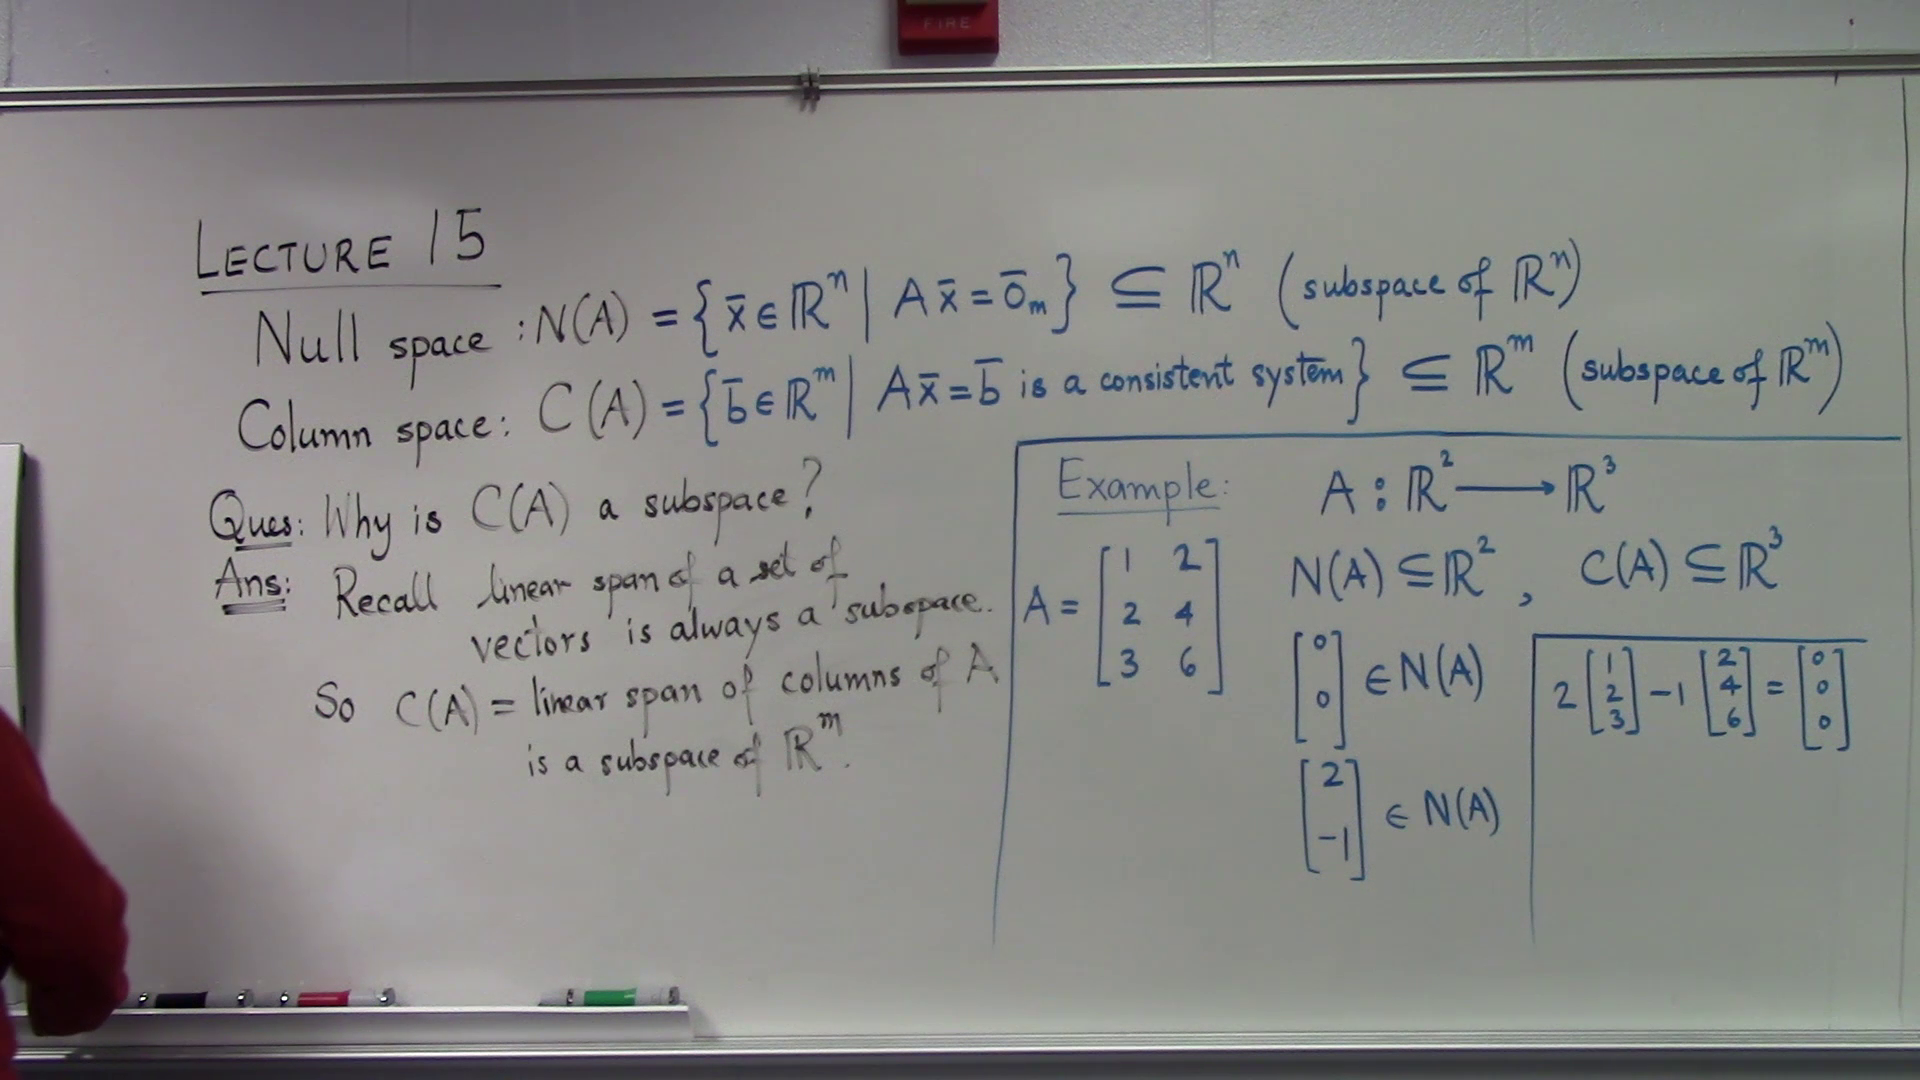 FIRE
LECTURE 15
Null space : N(A) = { x̄ ∈ ℝⁿ | Ax̄ = 0̄ₘ } ⊆ ℝⁿ (subspace of ℝⁿ)
Column space: C(A) = { b̄ ∈ ℝᵐ | Ax̄ = b̄ is a consistent system } ⊆ ℝᵐ (subspace of ℝᵐ)
Ques: Why is C(A) a subspace?
Ans: Recall linear span of a set of
vectors is always a subspace.
So C(A) = linear span of columns of A
is a subspace of ℝᵐ.
Example: A : ℝ² ⟶ ℝ³
A = [1 2; 2 4; 3 6]
N(A) ⊆ ℝ², C(A) ⊆ ℝ³
[0; 0] ∈ N(A)
[2; -1] ∈ N(A)
2 [1; 2; 3] - 1 [2; 4; 6] = [0; 0; 0]